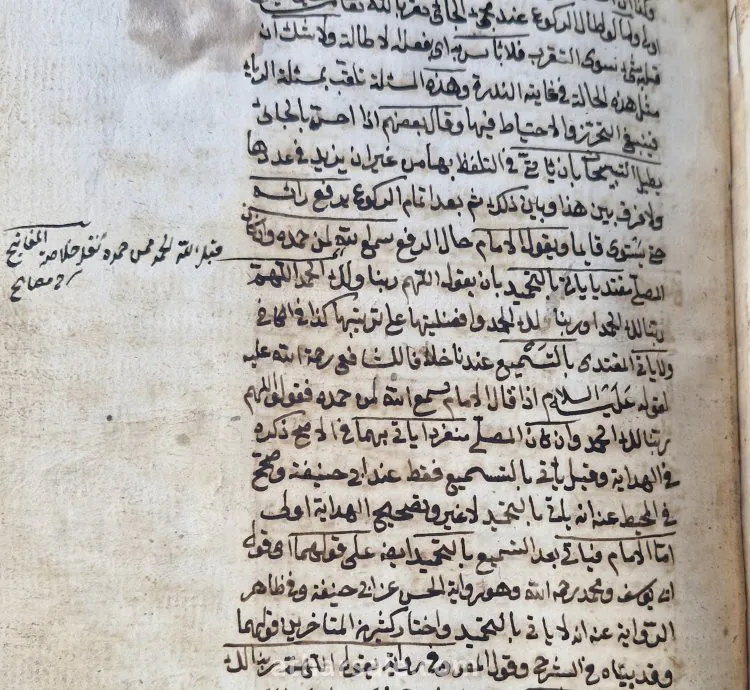 الركوع عند مجيء الجائي تقربا لله
قلبه شئ سوى التقرب فلا باس به اى بفعله لاطالة ولا شك ان
مثل هذه الحالة في غاية الندرة وهذه المسئلة تلقب بمسئلة الريا
فينبغي التحرز والاحتياط فيها وقال بعضهم اذا احس بالجائى
يطيل التسبيحات بان يتأنى في التلفظ بها من غير ان يزيد في عددها
ولا فرق بين هذا وبين ذلك ثم بعد اتمام الركوع يرفع راسه
حتى يستوى قايما ويقول الامام حال الرفع سمع الله لمن حمده وان كان
المصلى مقتديا ياتى بالتحميد بان يقول اللهم ربنا ولك الحمد اللهم
ربنا لك الحمد او ربنا لك الحمد وافضليتها على ترتيبها كذا في الكافي
ولا ياتى المقتدى بالتسميع عندنا خلافا للشافعى رحمة الله عليه
لقوله عليه السلام اذا قال الامام سمع الله لمن حمده فقولوا اللهم
ربنا لك الحمد وان كان المصلى منفردا ياتى بهما في الاصح ذكره
في الهداية وقيل ياتى بالتسميع فقط عند ابى حنيفة وصحح
في المحيط عنه انه ياتى بالتحميد لا غير وتصحيح الهداية اولى
اما الامام فياتى بعد التسميع بالتحميد ايضا على قولهما اى قول
ابى يوسف ومحمد رحمه الله وهو رواية الحسن عن ابى حنيفة وفي ظاهر
الرواية عنه انه لا ياتى بالتحميد واختار كثير من المتاخرين قولهما
وقد بيناه في الشرح وقول المص وفي رواية يقول اللهم ربنا لك
قبل الله الحمد ممن حمده نقل خلاصة المفاتيح
شرح مصابيح